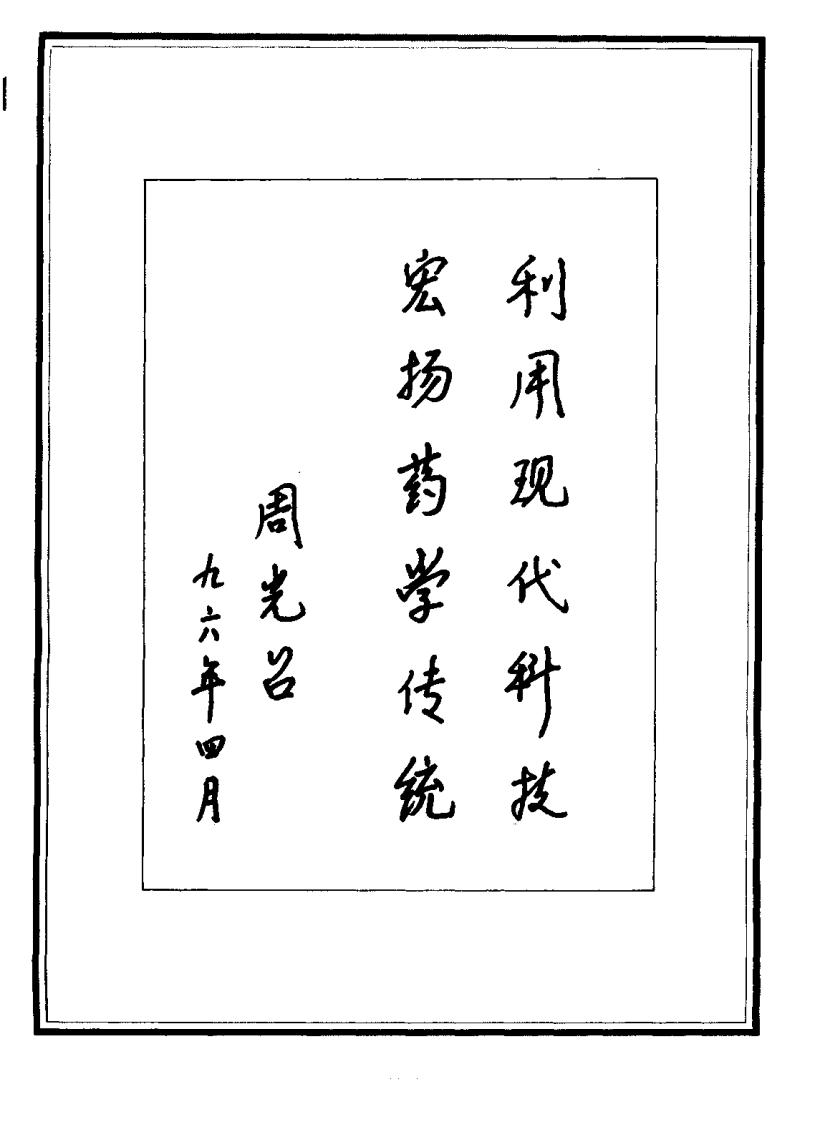 利用现代科技
宏扬药学传统
周光召
九六年四月